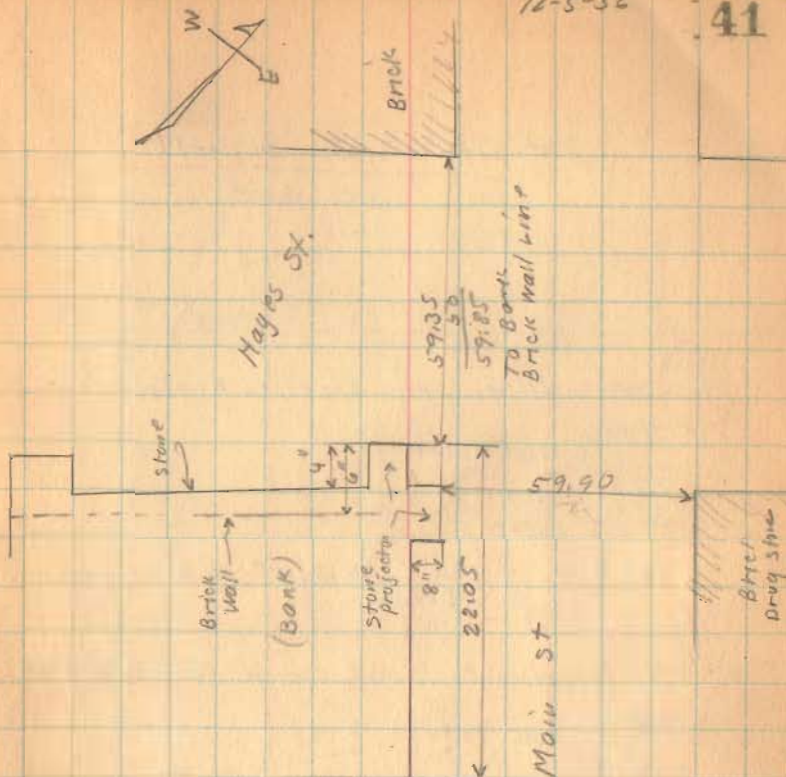 41
W
E
Brick
Hayes St.
59.35
50
59.85
To Bank
Brick Wall Line
Stone
4"
6"
Brick
Wall
(Bank)
Stone
projector
8"
22.05
59.90
Main St
Drug Store